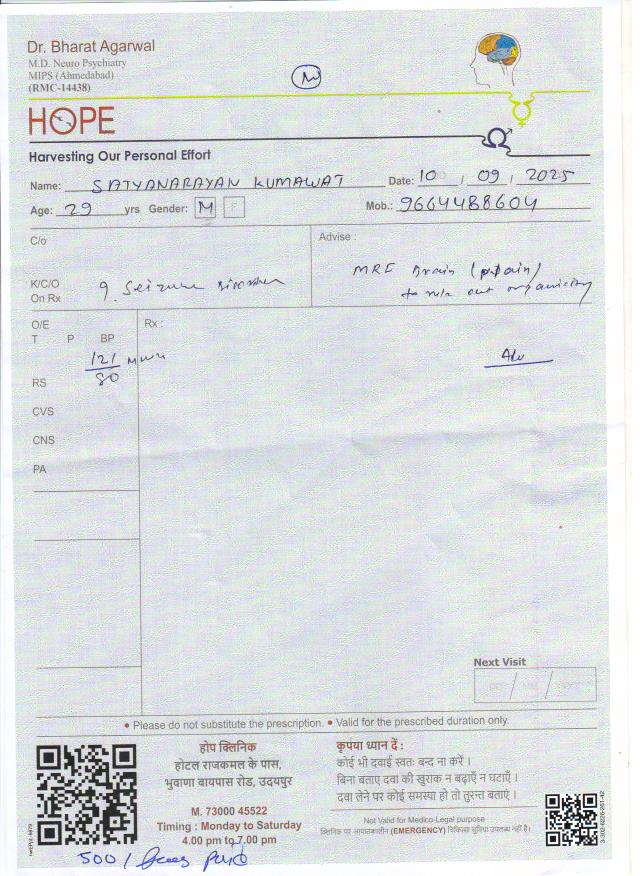 Dr. Bharat Agarwal
M.D. Neuro Psychiatry
MIPS (Ahmedabad)
(RMC-14438)
N
HOPE
Harvesting Our Personal Effort
Name: SATYANARAYAN KUMAWAT Date: 10 / 09 / 2025
Age: 29 yrs Gender: M F Mob.: 9664488604
C/o Advise :
MRI Brain (plain)
K/C/O
On Rx ? Seizure disorder to rule out organicity
O/E Rx :
T P BP
121 mmHg
80
RS
CVS
CNS
PA
Next Visit
• Please do not substitute the prescription. • Valid for the prescribed duration only.
होप क्लिनिक
होटल राजकमल के पास,
भुवाणा बायपास रोड, उदयपुर
M. 73000 45522
Timing : Monday to Saturday
4.00 pm to 7.00 pm
कृपया ध्यान दें :
कोई भी दवाई स्वतः बन्द ना करें ।
बिना बताए दवा की खुराक न बढ़ाएँ न घटाएँ ।
दवा लेने पर कोई समस्या हो तो तुरन्त बताएं ।
Not Valid for Medico-Legal purpose
क्लिनिक पर आपातकालीन (EMERGENCY) चिकित्सा सुविधा उपलब्ध नहीं है।
500 / fees paid